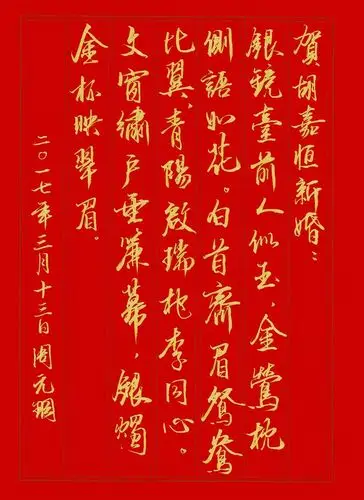 賀胡嘉恒新婚：
銀鏡臺前人似玉，金鶯枕
側語如花。白首齊眉鴛鴦
比翼，青陽啟瑞桃李同心。
文窗繡戶垂簾幕，銀燭
金杯映翠眉。
二〇一七年三月十三日周元